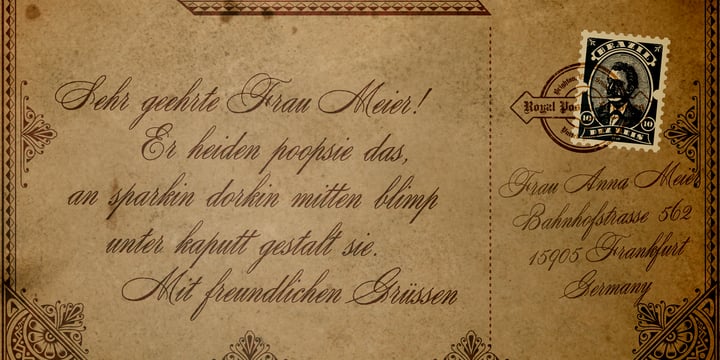 Sehr geehrte Frau Meier!
Er heiden poopsie das,
an sparkin dorkin mitten blimp
unter kaputt gestalt sie.
Mit freundlichen Grüssen
BRAZIL
Royal Pos
10 10
Frau Anna Meier
Bahnhofstrasse 562
15905 Frankfurt
Germany